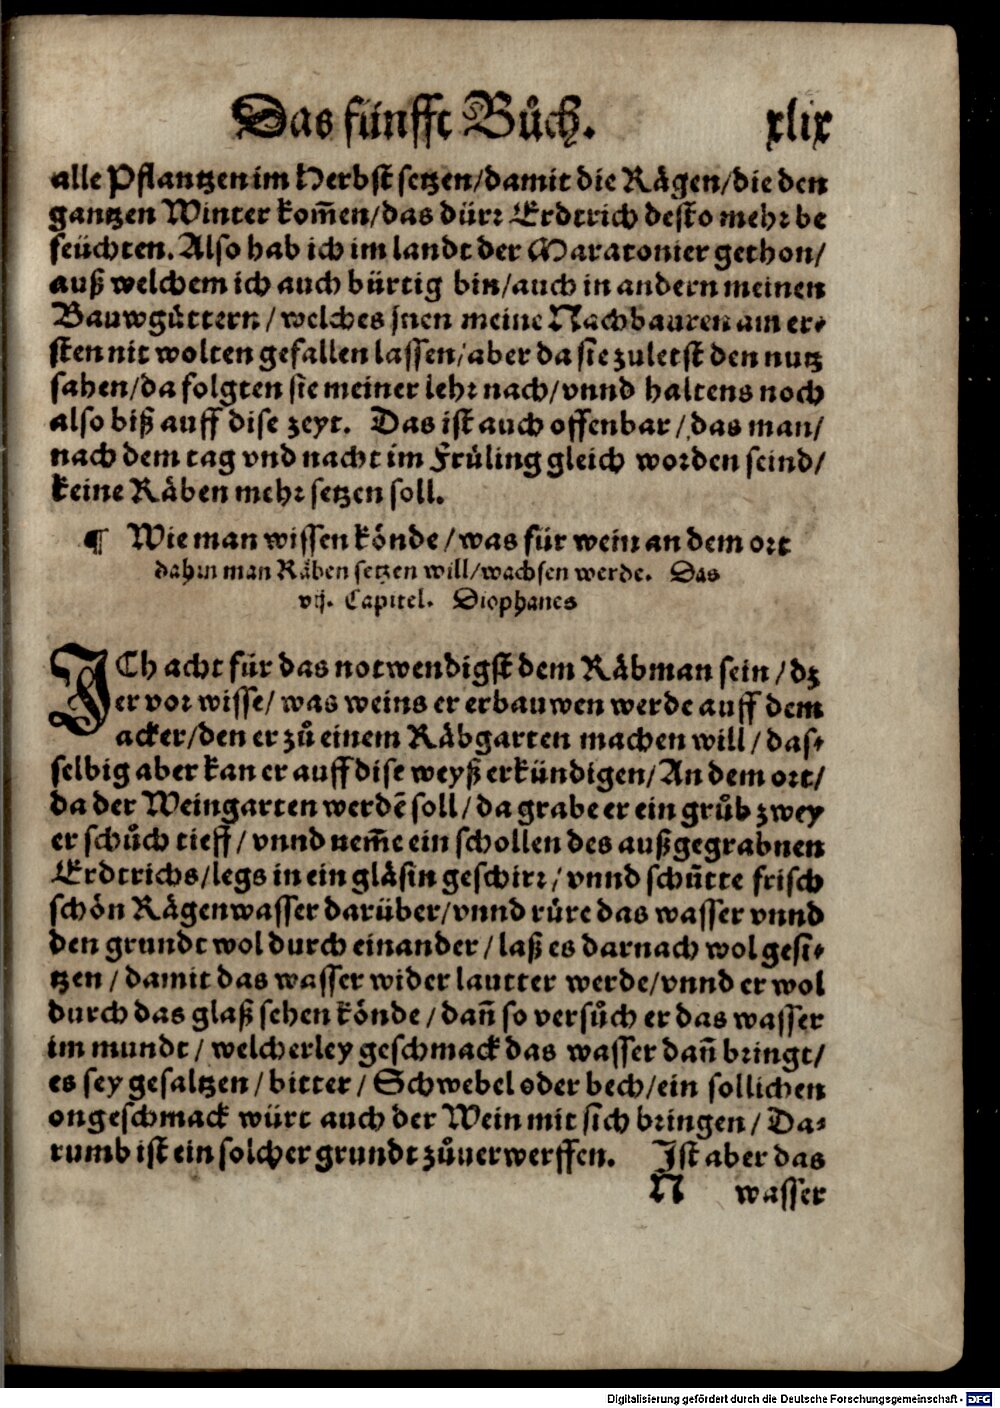 Das fünfft Bůch. xlix
alle Pflantzen im Herbst setzen/damit die Rägen/die den
gantzen Winter kom̄en/das dürr Erdtrich desto mehr be
feüchten. Also hab ich im landt der Maratonier gethon/
auß welchem ich auch bürtig bin/auch in andern meinen
Bauwgüttern/welches jnen meine Nachbauren am er⸗
sten nit wolten gefallen lassen/aber da sie zuletst den nutz
sahen/da folgten sie meiner lehr nach/vnnd haltens noch
also biß auff dise zeyt. Das ist auch offenbar/das man/
nach dem tag vnd nacht im Früling gleich worden seind/
keine Räben mehr setzen soll.
¶ Wie man wissen könde/was für wein an dem ort
dahin man Räben setzen will/wachsen werde. Das
vij. Capitel. Diophanes
ICh acht für das notwendigst dem Räbman sein/dz
er vor wisse/was weins er erbauwen werde auff dem
acker/den er zů einem Räbgarten machen will/das⸗
selbig aber kan er auff dise weyß erkündigen/An dem ort/
da der Weingarten werdē soll/da grabe er ein grůb zwey
er schůch tieff/vnnd nem̄e ein schollen des außgegrabnen
Erdtrichs/legs in ein gläsin geschirr/vnnd schütte frisch
schön Rägenwasser darüber/vnnd rüre das wasser vnnd
den grundt wol durch einander/laß es darnach wol gesi⸗
tzen/damit das wasser wider lautter werde/vnnd er wol
durch das glaß sehen könde/dañ so versůch er das wasser
im mundt/welcherley geschmack das wasser dañ bringt/
es sey gesaltzen/bitter/Schwebel oder bech/ein sollichen
ongeschmack würt auch der Wein mit sich bringen/Da⸗
rumb ist ein solcher grundt zůuerwerffen. Ist aber das
N wasser
Digitalisierung gefördert durch die Deutsche Forschungsgemeinschaft - DFG